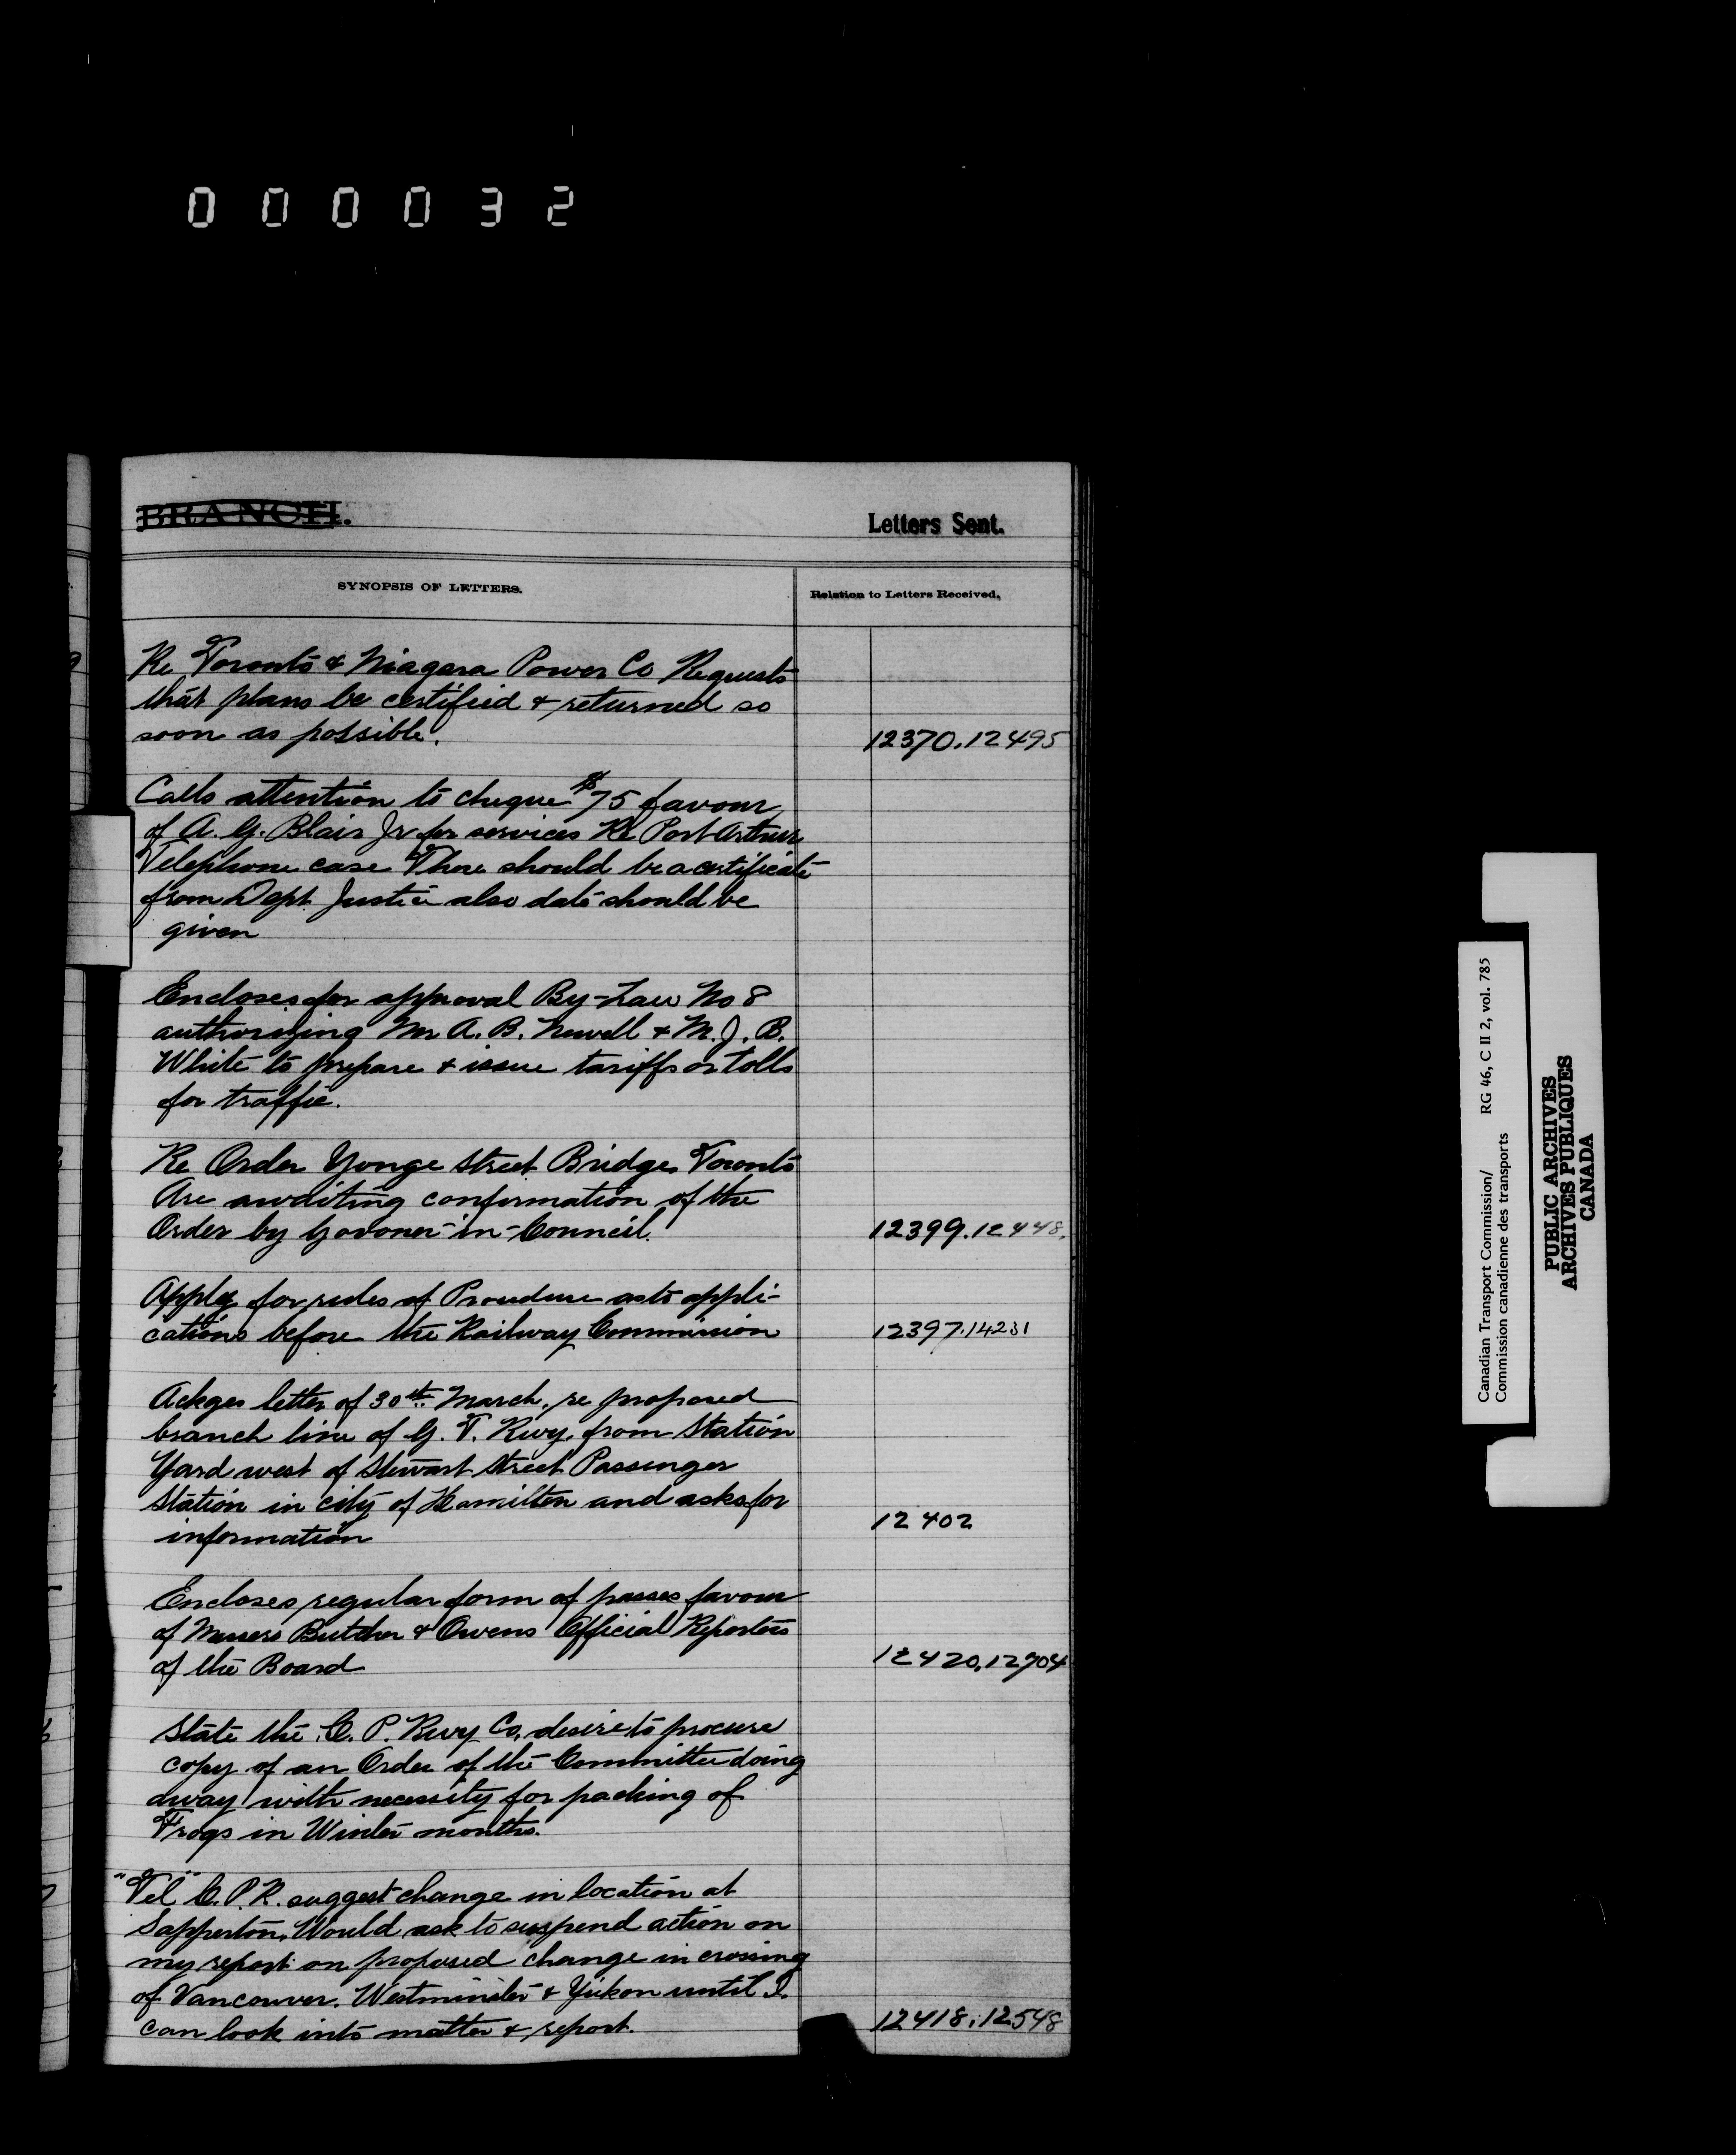 000032
BRANCH.
Letters Sent.
SYNOPSIS OF LETTERS.
Relation to Letters Received.
Re Toronto & Niagara Power Co Requests
that plans be certified & returned so
soon as possible.
12370.12495
Calls attention to cheque $75 favour
of A. G. Blair Jr for services Re Port Arthur
Telephone case There should be a certificate
from Dept Justice also date should be
given
Encloses for approval By-Law No 8
authorizing Mr A. B. Newell & M. J. B.
White to prepare & issue tariffs or tolls
for traffic.
Re Order Yonge Street Bridge, Toronto
Are awaiting confirmation of the
Order by Govoner-in-Council.
12399.12448.
Apply for rules of Procedure as to appli-
cations before the Railway Commission
12397.14231
Ackges letter of 30th March, re proposed
branch line of G. T. Rwy. from Station
Yard west of Stewart Street Passenger
Station in city of Hamilton and asks for
information
12402
Encloses regular form of passes favour
of Messrs Butcher & Owens Official Reporters
of the Board
12420,12704
State the C. P. Rwy Co, desire to procure
copy of an Order of the Committee doing
away with necessity for packing of
Frogs in Winter months.
"Tel" C. P. R. suggest change in location at
Sapperton. Would ask to suspend action on
my report on proposed change in crossing
of Vancouver. Westminster & Yukon until I
can look into matter & report.
12418.12548
Canadian Transport Commission/ RG 46, C II 2, vol. 785
Commission canadienne des transports
PUBLIC ARCHIVES
ARCHIVES PUBLIQUES
CANADA